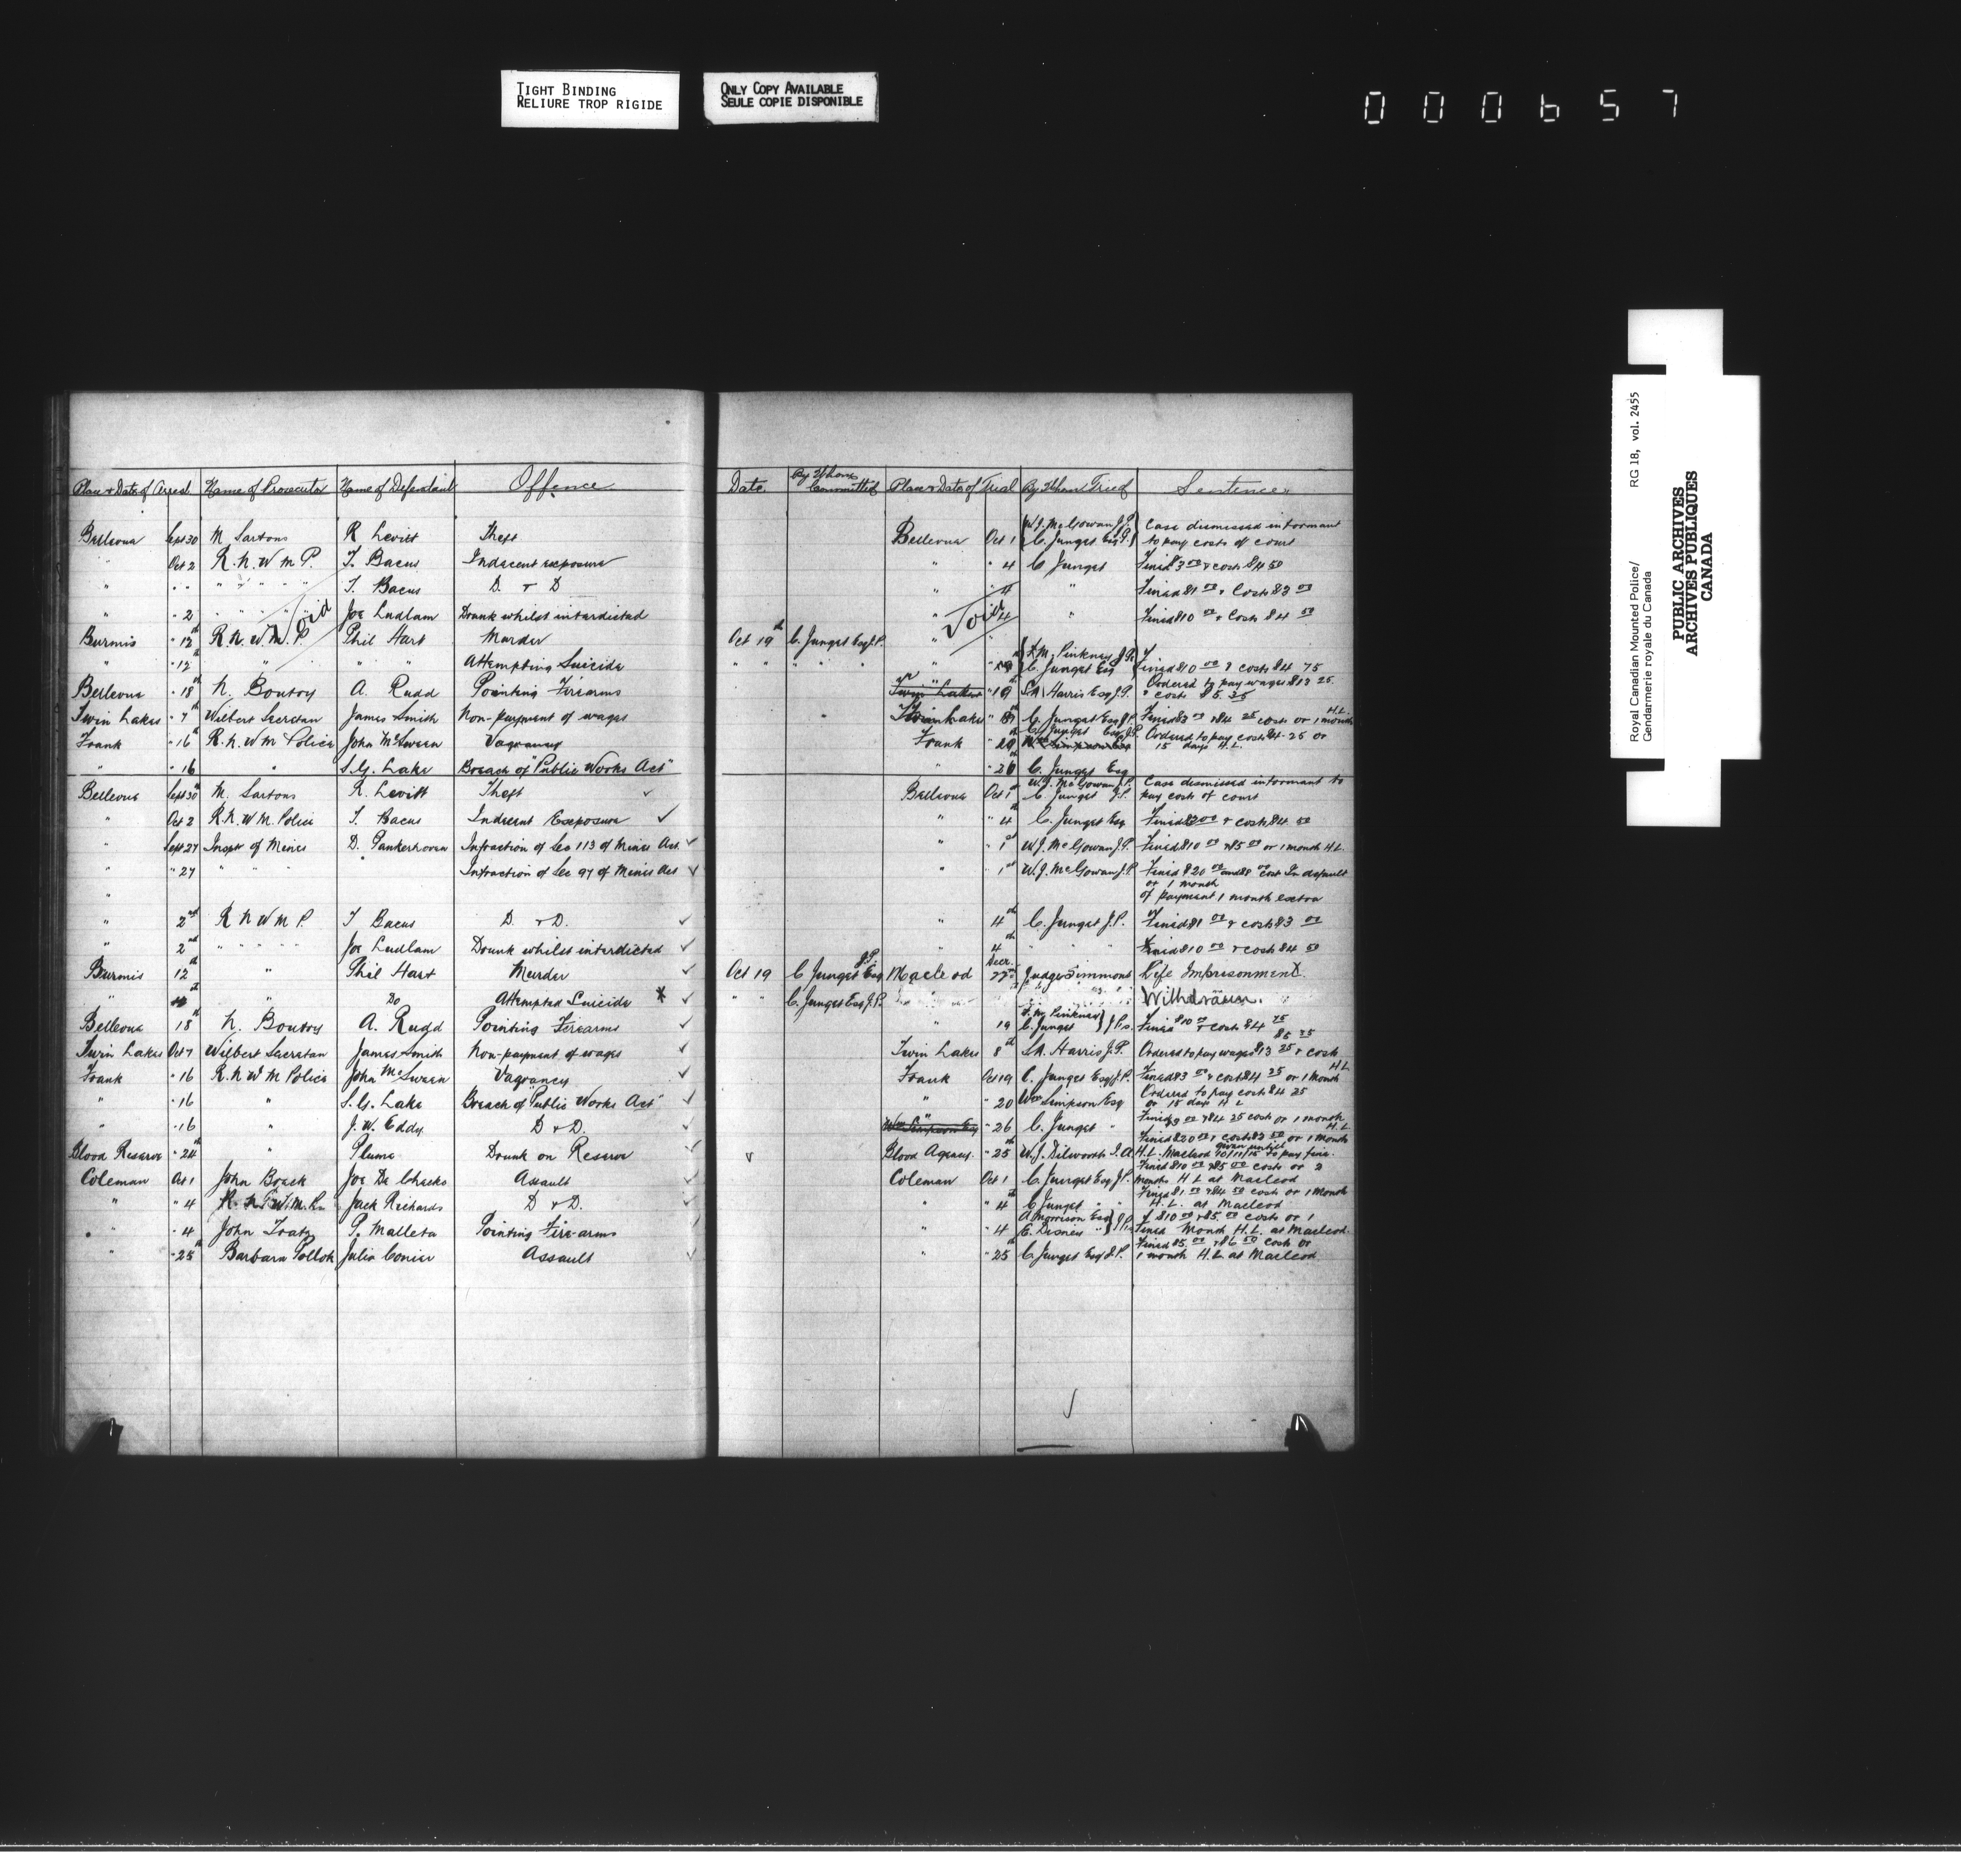 TIGHT BINDING
RELIURE TROP RIGIDE
ONLY COPY AVAILABLE
SEULE COPIE DISPONIBLE
000657
Royal Canadian Mounted Police/ RG 18, vol. 2455
Gendarmerie royale du Canada
PUBLIC ARCHIVES
ARCHIVES PUBLIQUES
CANADA
Place & Date of Arrest Name of Prosecutor Name of Defendant Offence Date. By Whom Committed Place & Date of Trial By Whom Tried Sentence.
Bellevue Sept 30 M. Sartons R Levitt Theft Bellevue Oct 1 W.J. McGowan J.P. C. Junget Esq J.P. Case dismissed informant
to pay costs of court
" Oct 2 R.N.W.M.P. T. Bacus Indecent exposure " " 4 C Junget Fined $3 00 & costs $4 50
" " " " " " " T. Bacus D. & D " 4 " Fined $1 00 & Costs $3 00
" " 2 " " " " Void Joe Ludlam Drunk whilst interdicted " Void 4 " Fined $10 00 & Costs $4 50
Burmis " 12th R.N.W.M.P. Phil Hart Murder Oct 19th C. Junget Esq J.P. " "
" " 12th " " " Attempting Suicide " " " " " " " 19 F.M. Pinkney J.P. C. Junget Esq Fined $10 00 & costs $4 75
Bellevue " 18th N. Boutry A. Rudd Pointing Firearms Twin Lakes " 19 S.A. Harris Esq J.P. Ordered to pay wages $13 25
& costs $5. 35
Twin Lakes " 7th Wilbert Secretan James Smith Non-payment of wages Twin Lake " 8th C. Junget Esq J.P. Fined $3 00 & $4 25 costs or 1 month H.L.
Frank " 16th R.N.W.M Police John McSween Vagrancy Frank " 20 C. Junget Esq J.P. Wm Simpson Esq Ordered to pay costs $4.25 or
15 days H.L.
" " 16 " S.G. Lake Breach of "Public Works Act" " " 26 C. Junget Esq
Bellevue Sept 30th M. Sartons R. Levitt Theft Bellevue Oct 1st W.J. McGowan J.P. C. Junget J.P. Case dismissed informant to
pay costs of court
" Oct 2 R.N.W.M. Police T. Bacus Indecent Exposure " " 4th C. Junget Esq Fined $3 00 & costs $4 50
" Sept 27 Inspr of Mines D. Pankerhoven Infraction of Sec 113 of Mines Act. " " 1st W.J. McGowan J.P. Fined $10 00 & $5 00 or 1 month H.L.
" " 27 " " " Infraction of Sec 97 of Mines Act " " 1st W.J. McGowan J.P. Fined $20 00 and $8 00 cost In default
or 1 month
" of payment 1 month extra
" 2nd R N W M P. T Bacus D. & D. " 4th C. Junget J.P. Fined $1 00 & costs $3 00
" 2nd " " " " " Joe Ludlam Drunk whilst interdicted " 4th " " " Fined $10 00 & costs $4 50
Burmis 12th " Phil Hart Murder Oct 19 C Junget Esq J.P. Macleod Decr. 22nd Judge Simmons Life Imprisonment.
" " Do Attempted Suicide " " C. Junget Esq J.P. Withdrawn.
Bellevue 18th N. Boutry A. Rudd Pointing Firearms " 19 F.M. Pinkney C. Junget J.P.s. Fined $10 00 & costs $4 75
Twin Lakes Oct 7 Wilbert Secretan James Smith Non-payment of wages Twin Lakes 8th S.A. Harris J.P. Ordered to pay wages $13 25 & costs $5 35
Frank " 16 R.N.W M Police John McSween Vagrancy Frank Oct 19 C. Junget Esq J.P. Fined $3 00 & costs $4 25 or 1 Month H L
" " 16 " S.G. Lake Breach of "Public Works Act" " " 20 Wm Simpson Esq Ordered to pay costs $4 25
or 15 days H L
" " 16 " J.W. Eddy D & D. Wm Simpson Esq " 26 C. Junget " Fined $3 00 & $4 25 costs or 1 month H.L.
Blood Reserve " 24th " Plume Drunk on Reserve Blood Agency " 25th W.J. Dilworth I.A. Fined $20 00 & costs $2 50 or 1 Month
H.L. Macleod given until 10/11/15 to pay fine.
Coleman Oct 1 John Brack Joe De Checks Assault Coleman Oct 1 C. Junget Esq J.P. Fined $10 00 & $5 00 costs or 2
months H L at Macleod
" " 4 R.N.W.M.P. Jack Richards D & D. " " 4th C Junget " " Fined $1 00 & $4 50 costs or 1 Month
H.L. at Macleod
" " 4 John Tratz P. Malleta Pointing Fire-arms " " 4 A Morrison Esq E. Disney " J.P.s Fined $10 00 & $5. 00 costs or 1
Month H.L. at Macleod.
" " 25th Barbara Pollok Julia Conier Assault " " 25th C Junget Esq J.P. Fined $5. 00 & $6 50 costs or
1 month H.L at Macleod